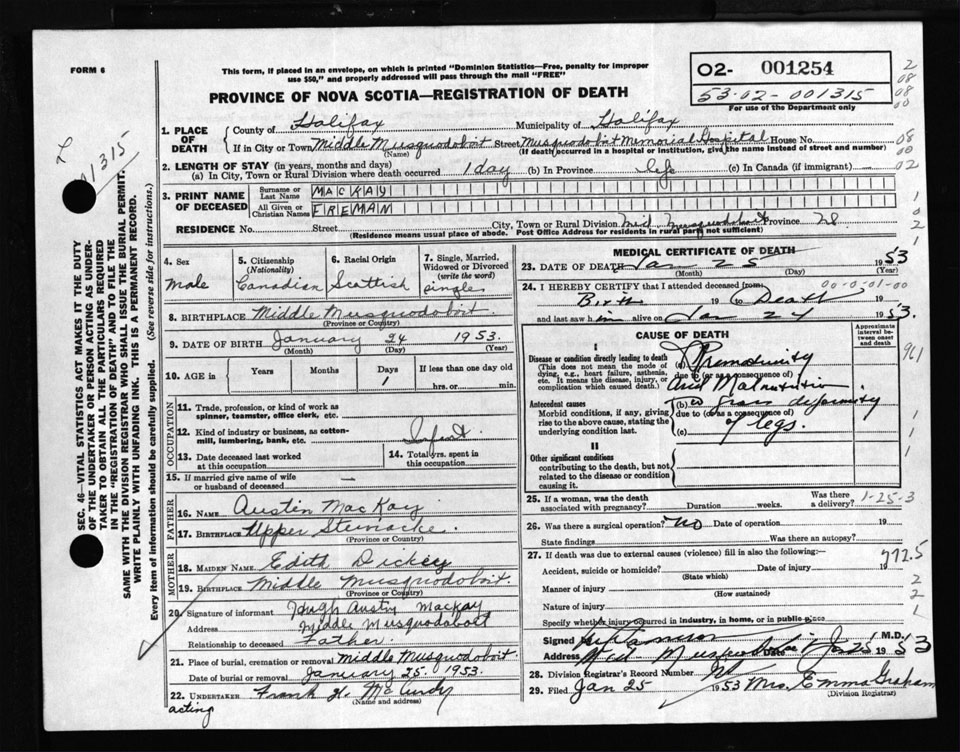 FORM 6
This form, if placed in an envelope, on which is printed "Dominion Statistics—Free, penalty for improper
use $50," and properly addressed will pass through the mail "FREE"
PROVINCE OF NOVA SCOTIA—REGISTRATION OF DEATH
02- 001254
53-02-001315
For use of the Department only
2
08
08
00
1315
SEC. 46—VITAL STATISTICS ACT MAKES IT THE DUTY
OF THE UNDERTAKER OR PERSON ACTING AS UNDER-
TAKER TO OBTAIN ALL THE PARTICULARS REQUIRED
IN THE "REGISTRATION OF DEATH" AND TO FILE THE
SAME WITH THE DIVISION REGISTRAR WHO SHALL ISSUE THE BURIAL PERMIT.
WRITE PLAINLY WITH UNFADING INK. THIS IS A PERMANENT RECORD.
Every item of information should be carefully supplied. (See reverse side for instructions.)
1. PLACE OF DEATH
County of Halifax Municipality of Halifax
If in City or Town Middle Musquodoboit Street Musquodoboit Memorial Hospital House No. 08
(Name) (If death occurred in a hospital or institution, give the name instead of street and number) 00
2. LENGTH OF STAY (in years, months and days)
(a) In City, Town or Rural Division where death occurred 1 day (b) In Province life (c) In Canada (if immigrant) 02
3. PRINT NAME OF DECEASED
Surname or Last Name MACKAY
All Given or Christian Names FREMAN
1
0
2
1
RESIDENCE No. Street City, Town or Rural Division Mid. Musquodoboit Province NS
(Residence means usual place of abode. Post Office Address for residents in rural parts not sufficient)
4. Sex
male
5. Citizenship (Nationality)
Canadian
6. Racial Origin
Scottish
7. Single, Married, Widowed or Divorced (write the word)
single
8. BIRTHPLACE Middle Musquodoboit.
(Province or Country)
9. DATE OF BIRTH January 24 1953.
(Month) (Day) (Year)
10. AGE in Years Months Days If less than one day old
1 hrs. or min.
OCCUPATION
11. Trade, profession, or kind of work as
spinner, teamster, office clerk, etc.
12. Kind of industry or business, as cotton-
mill, lumbering, bank, etc. Infant
13. Date deceased last worked
at this occupation
14. Total yrs. spent in
this occupation
15. If married give name of wife
or husband of deceased
FATHER
16. NAME Austin MacKay
17. BIRTHPLACE Upper Stewiacke.
(Province or Country)
MOTHER
18. MAIDEN NAME Edith Dickey
19. BIRTHPLACE Middle Musquodoboit.
(Province or Country)
20. Signature of informant Hugh Austin Mackay
Address Middle Musquodoboit
Relationship to deceased Father.
21. Place of burial, cremation or removal Middle Musquodoboit
Date of burial or removal January 25. 1953.
22. UNDERTAKER Frank H. McCurdy
acting (Name and address)
MEDICAL CERTIFICATE OF DEATH
23. DATE OF DEATH Jan 25 1953
(Month) (Day) (Year)
24. I HEREBY CERTIFY that I attended deceased from: 00-0-01-00
Birth 19 to Death 19
and last saw him alive on Jan 24 1953.
CAUSE OF DEATH
Approximate interval between onset and death
I
Disease or condition directly leading to death
(This does not mean the mode of dying, e.g., heart failure, asthenia, etc. It means the disease, injury, or complication which caused death.)
(a) Prematurity
due to (or as a consequence of)
and Malnutrition
Antecedent causes
Morbid conditions, if any, giving rise to the above cause, stating the underlying condition last.
(b) gross deformity
due to (or as a consequence of)
(c) of legs.
II
Other significant conditions
contributing to the death, but not related to the disease or condition causing it.
961
1
1
1
25. If a woman, was the death
associated with pregnancy? Duration weeks. Was there a delivery? 1-25-3
26. Was there a surgical operation? No Date of operation 19
State findings Was there an autopsy?
27. If death was due to external causes (violence) fill in also the following:— 772.5
Accident, suicide or homicide? Date of injury 19
(State which)
Manner of injury
(How sustained)
Nature of injury
Specify whether injury occurred in industry, in home, or in public place
2
2
1
Signed M.D.
Address Mid Musquodoboit Date Jan 25 1953
28. Division Registrar's Record Number
29. Filed Jan 25 1953 Mrs. Emma Graham
(Division Registrar)